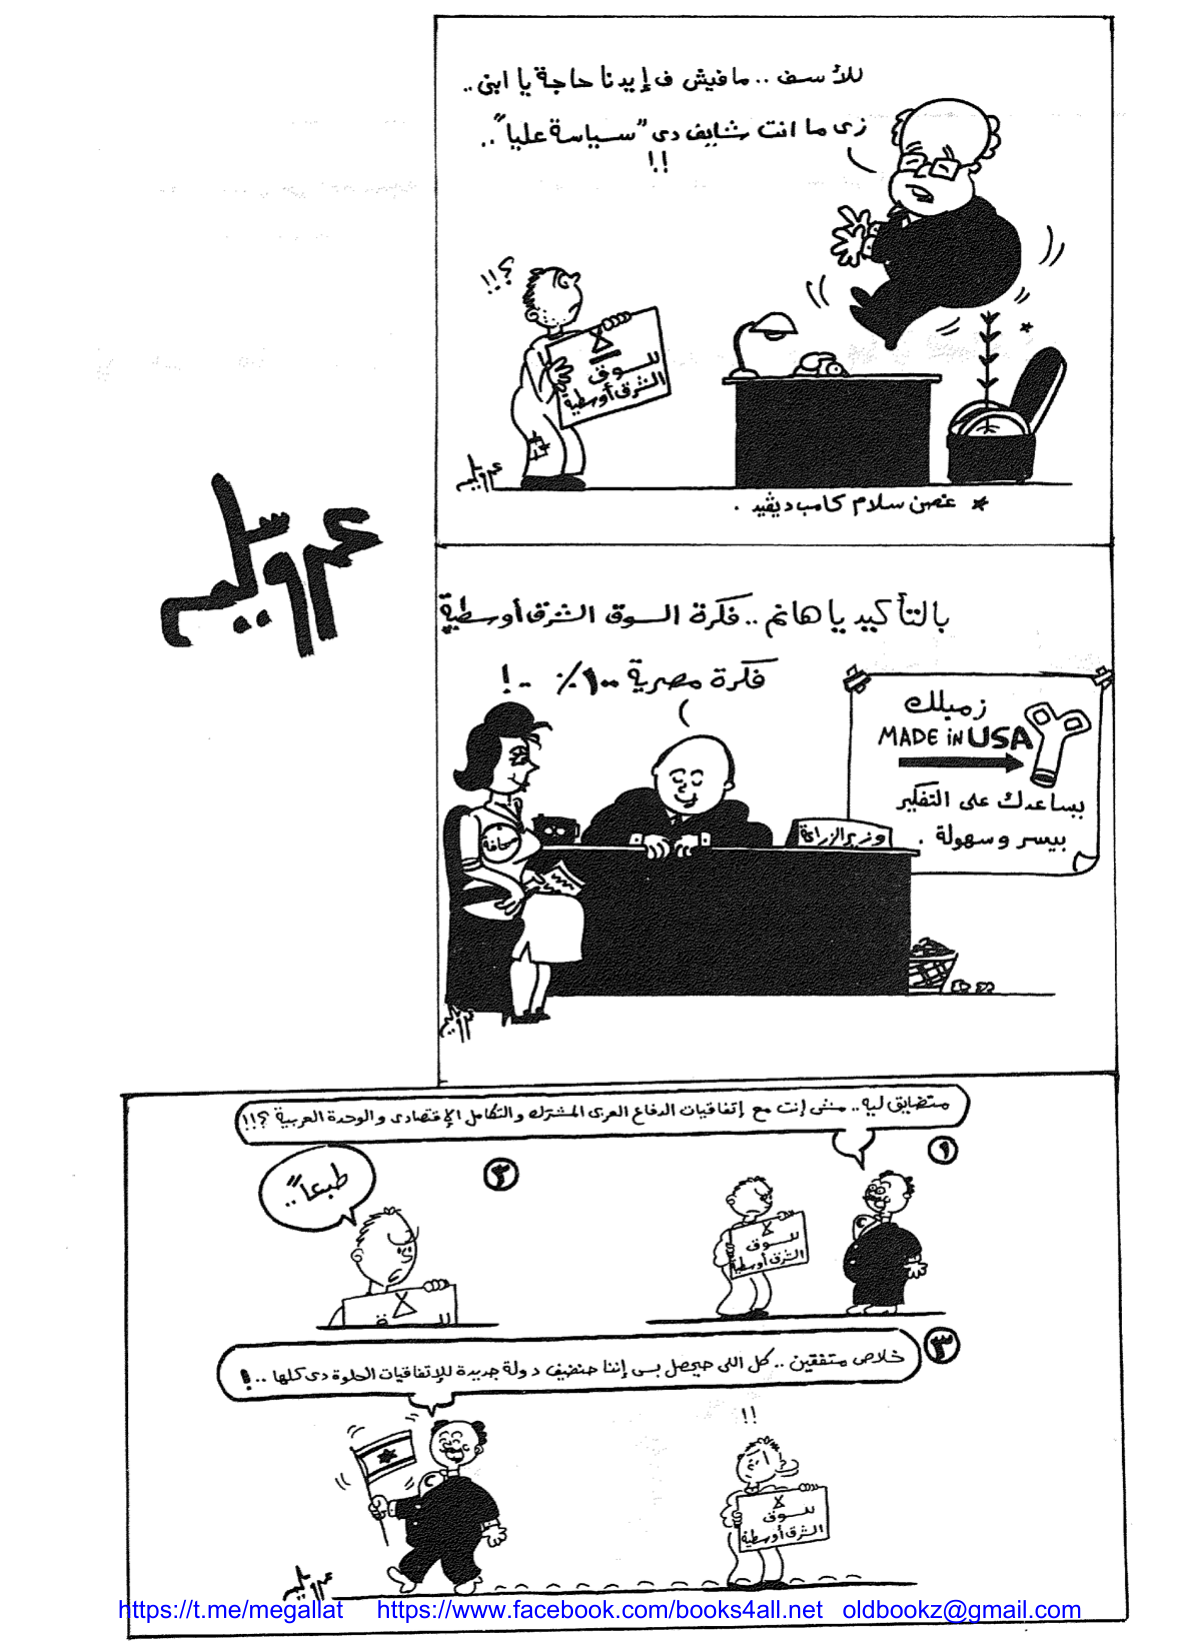 للأسف .. مافيش ف إيدنا حاجة يا ابنى ..
زى ما انت شايف دى "سياسة عليا" ..
!!
؟!!
لا
للسوق
الشرق أوسطية
عمرو سليم
* غصن سلام كامب ديڤيد .
عمرو سليم
بالتأكيد يا هانم .. فكرة السوق الشرق أوسطية
فكرة مصرية ١٠٠٪ ..!
زمبلك
MADE iN USA
بيساعدك على التفكير
بيسر وسهولة .
وزير الزراعة
صحافة
متضايق ليه .. مش إنت مع إتفاقيات الدفاع العربى المشترك والتكامل الإقتصادى والوحدة العربية ؟!!
١
لا
للسوق
الشرق أوسطية
٢
طبعاً ..
لا
٣
خلاص متفقين .. كل اللى حيحصل بس إننا حنضيف دولة جديدة للإتفاقيات الحلوة دى كلها ..!
!!
لا
للسوق
الشرق أوسطية
عمرو سليم
https://t.me/megallat https://www.facebook.com/books4all.net oldbookz@gmail.com